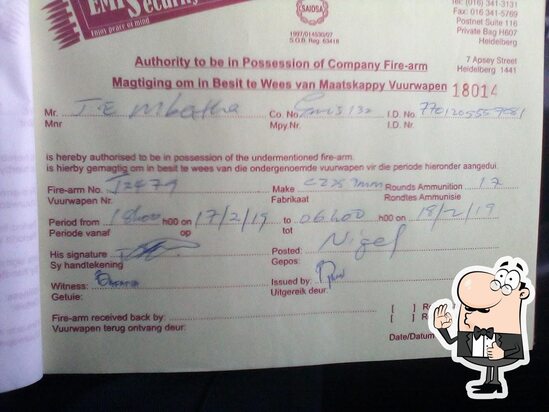 EMI Security
Enjoy peace of mind
SAIDSA
1997/014530/07
S.O.B. Reg. 63418
Tel: (016) 341-3131
Fax: 016 341-5769
Postnet Suite 116
Private Bag H607
Heidelberg
7 Apsey Street
Heidelberg 1441
Authority to be in Possession of Company Fire-arm
Magtiging om in Besit te Wees van Maatskappy Vuurwapen 18014
Mr. J.E Mbatha Co. No. I.D. No.
Mnr Mpy.Nr. I.D. Nr.
is hereby authorised to be in possession of the undermentioned fire-arm.
is hierby gemagtig om in besit te wees van die ondergenoemde vuurwapen vir die periode hieronder aangedui.
Fire-arm No. T2479 Make CZ75 9mm Rounds Ammunition 17
Vuurwapen Nr. Fabrikaat Rondtes Ammunisie
Period from 18h00 h00 on 17/2/19 to 06h00 h00 on 18/2/19
Periode vanaf op tot
His signature Posted: Nigel
Sy handtekening Gepos:
Witness: Issued by:
Getuie: Uitgereik deur:
Fire-arm received back by: [ ]
Vuurwapen terug ontvang deur: [ ]
Date/Datum